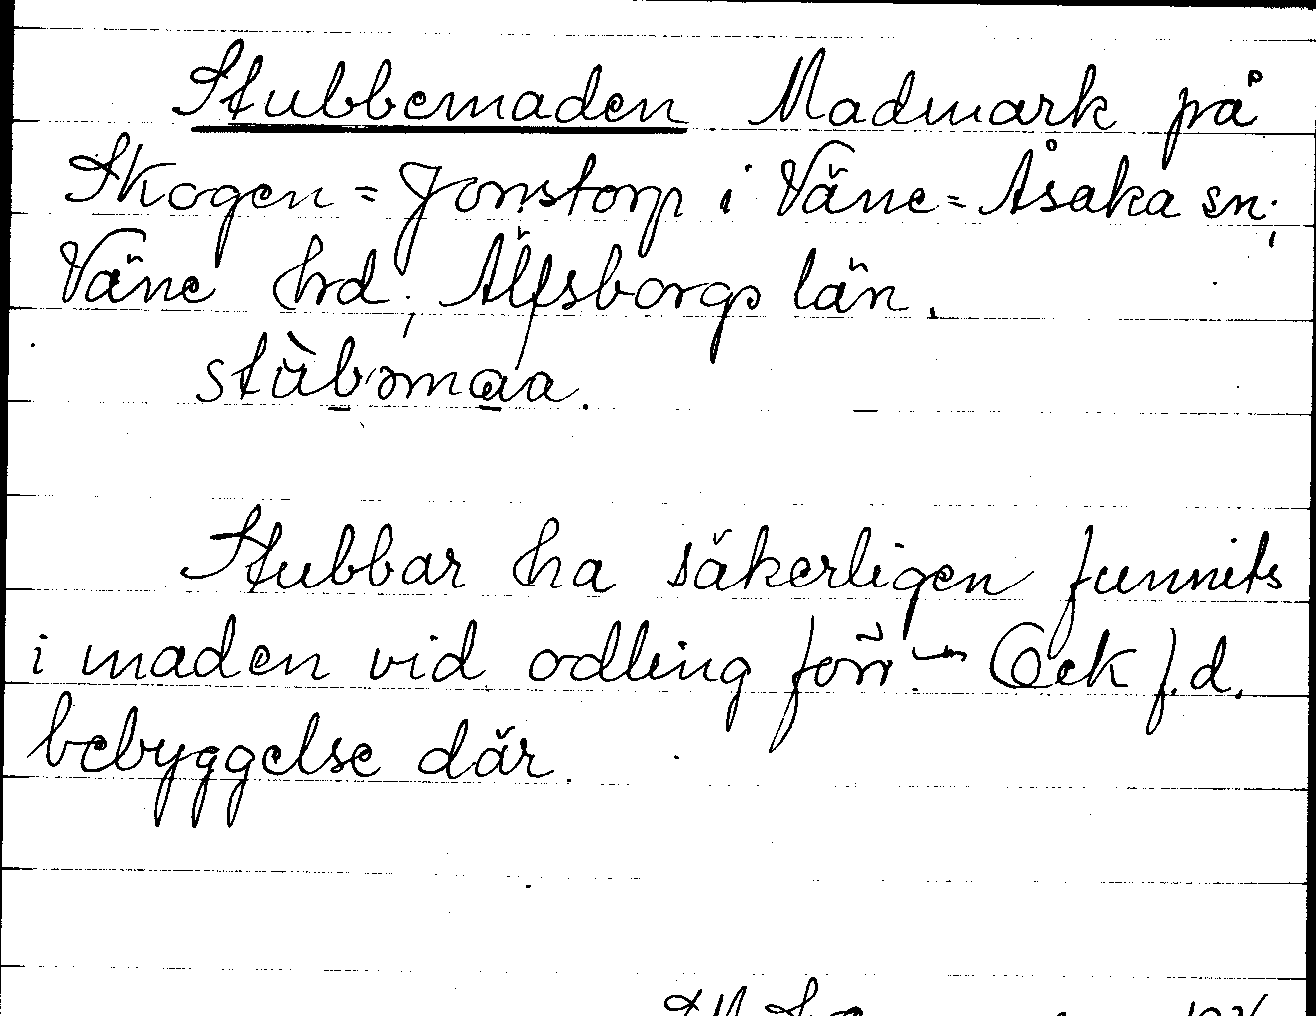 Stubbemaden Madmark på
Skogen = Jonstorp i Väne = Åsaka sn;
Väne hrd; Älfsborgs län.
stùbəmaa.
Stubbar ha säkerligen funnits
i maden vid odling förr. - Ock f.d.
bebyggelse där.